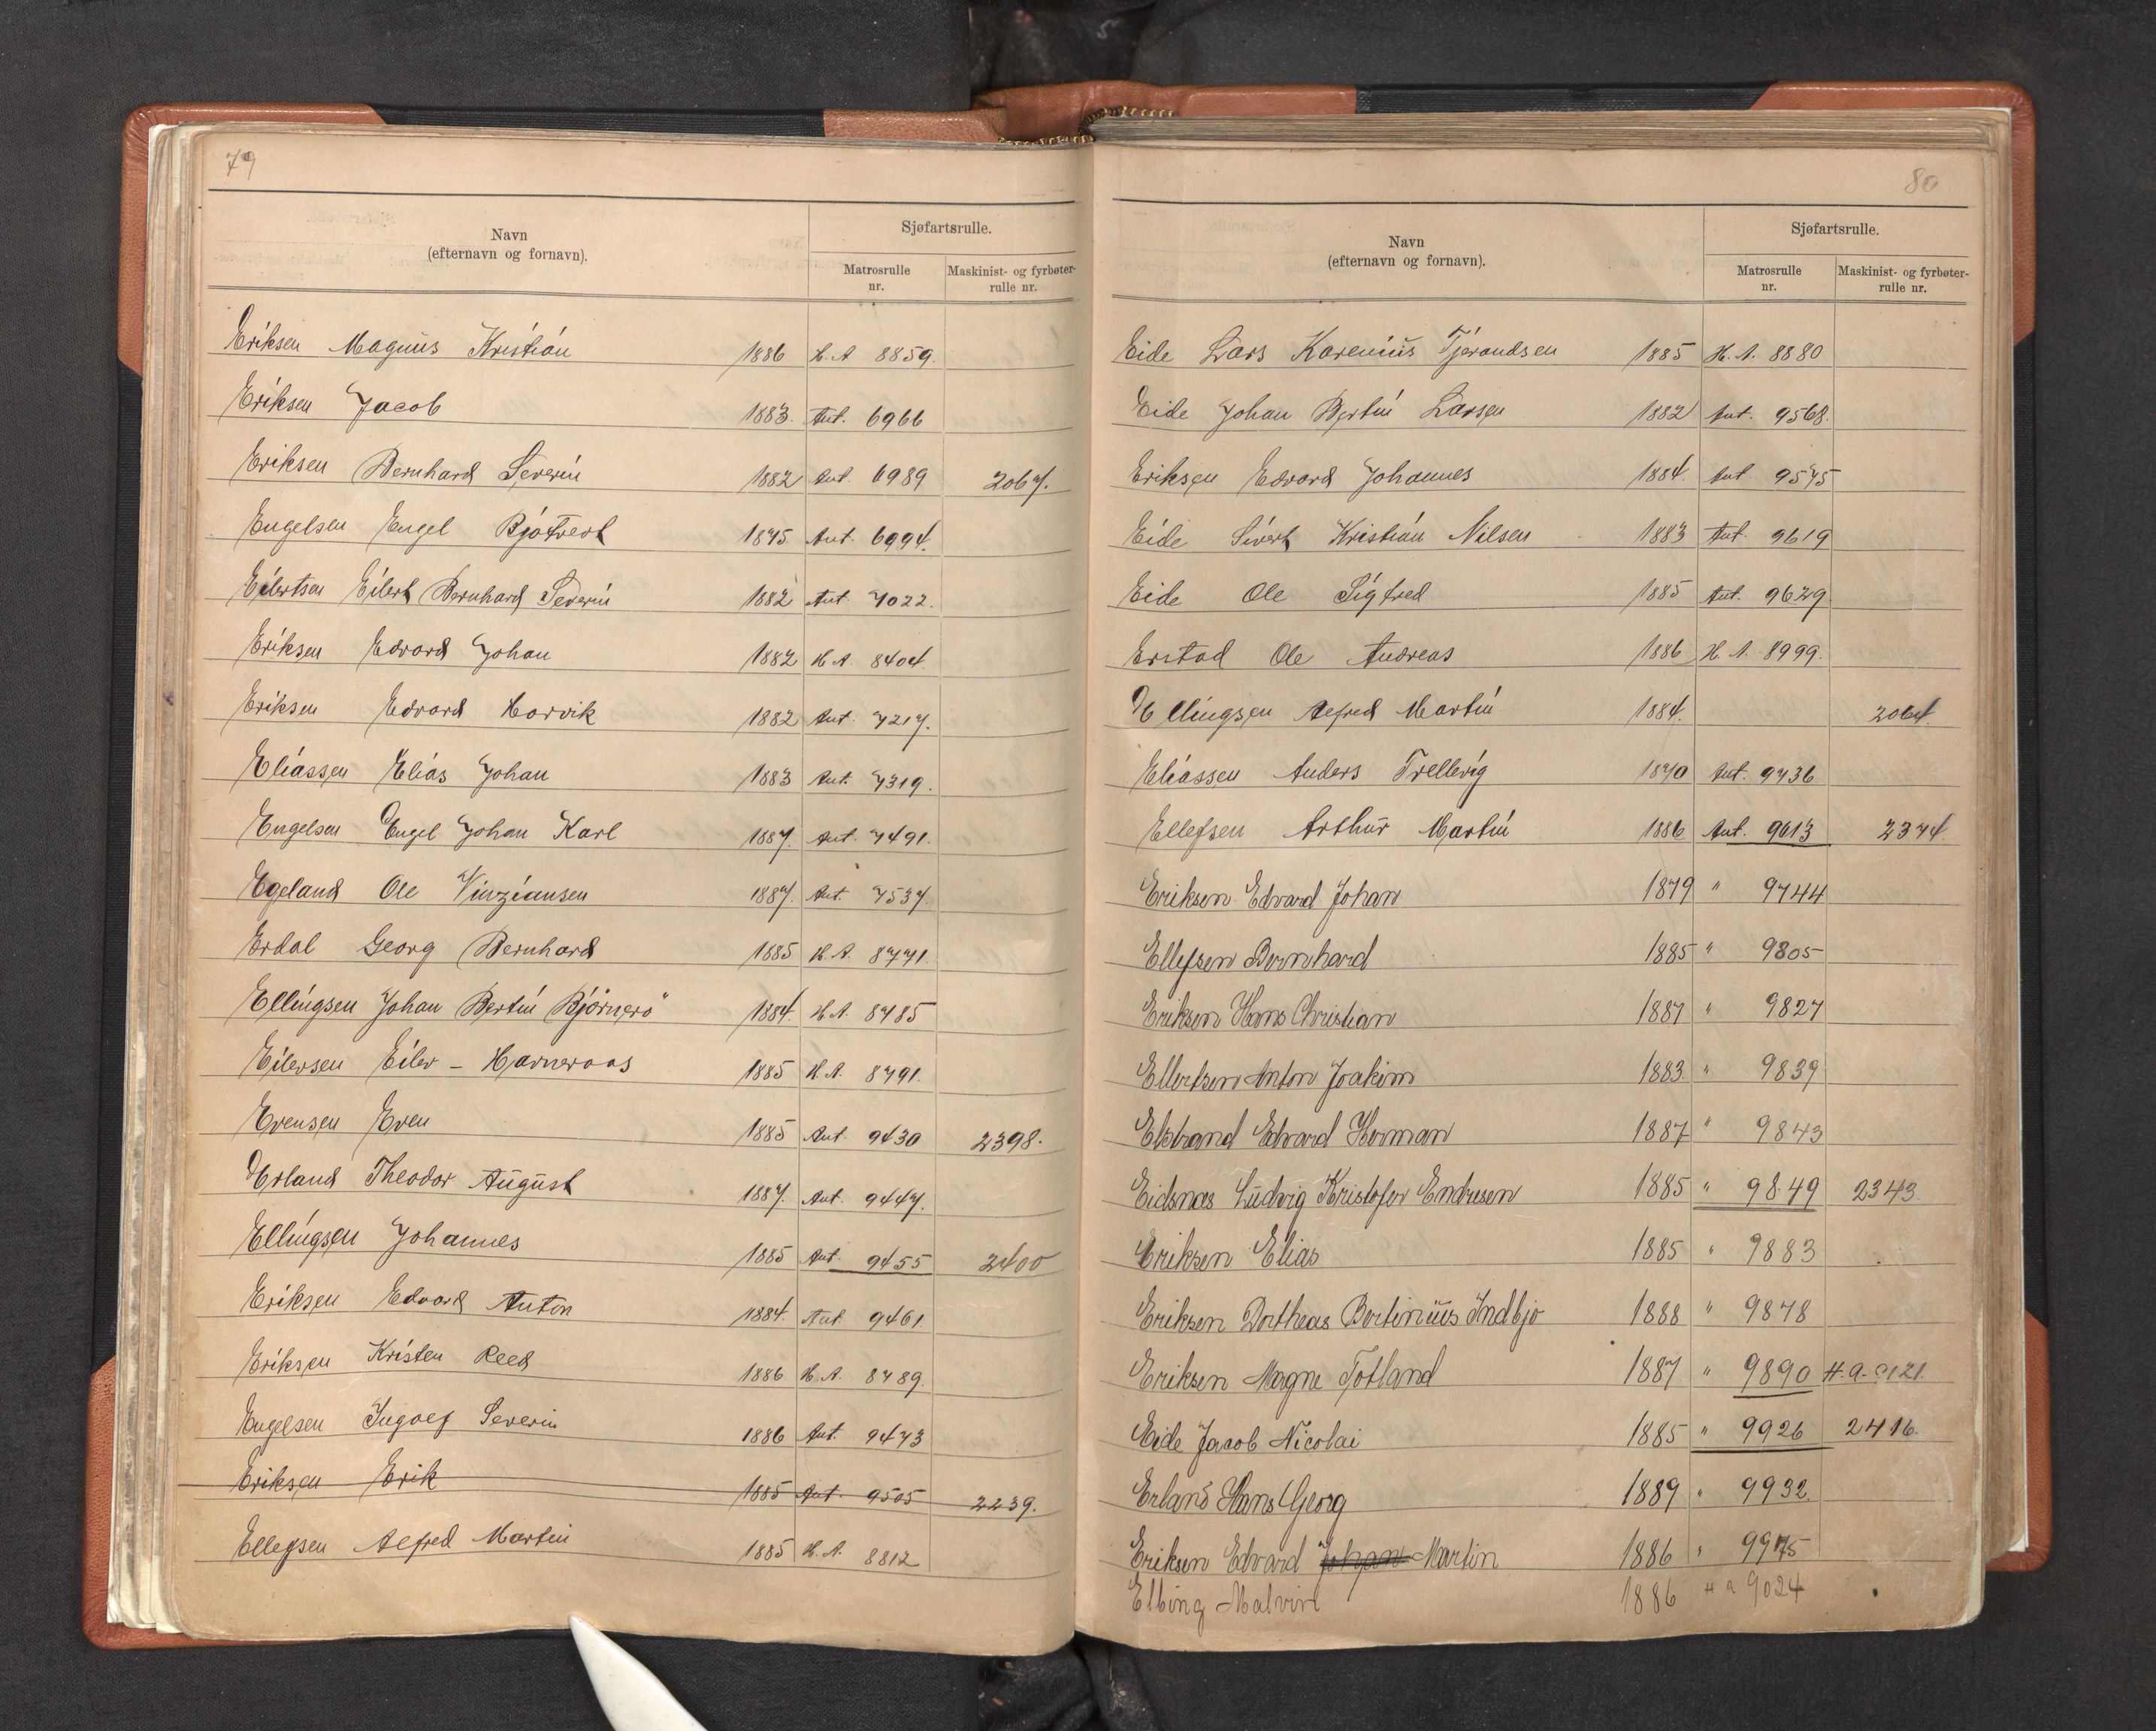 79
Navn
(efternavn og fornavn).
Sjøfartsrulle.
Matrosrulle
nr.
Maskinist- og fyrbøter-
rulle nr.
Eriksen Magnus Kristian 1886 H. A 8859.
Eriksen Jacob 1883. Aut. 6966
Eriksen Bernhard Severin 1882 Aut. 6989 2067.
Engelsen Engel 1875 Aut. 6994.
Eilertsen Eilert Bernhard Severin 1882 Aut 7022.
Eriksen Edvard Johan 1882 H A. 8404
Eriksen Edvard Horvik 1882 Aut. 7217.
Eliassen Elias Johan 1883 Aut. 7319.
Engelsen Engel Johan Karl 1887. Aut. 7491.
Egeland Ole Vinziansen 1887. Aut. 7537.
Erdal Georg Bernhard 1885 H A. 8771.
Ellingsen Johan Bertin Björnerö 1884. H A. 8785
Eilersen Eiler - Harneraas 1885 H A. 8791.
Evensen Even 1885 Aut. 9430 2398.
Erland Theodor August 1887. Aut. 9447.
Ellingsen Johannes 1885 Aut. 9455 2400
Eriksen Edvard Anton 1884. Aut 9461
Eriksen Kristen Reed 1886 H. A. 8789.
Engelsen Ingolf Severin 1886 Aut. 9473
Eriksen Erik 1885 Aut. 9505 2239.
Ellefsen Alfred Martin 1885 H. A. 8812
80
Navn
(efternavn og fornavn).
Sjøfartsrulle.
Matrosrulle
nr.
Maskinist- og fyrbøter-
rulle nr.
Eide Lars Karenius Tjerandsen 1885 H. A. 8880
Eide Johan Bertin Larsen 1882 Aut. 9568.
Eriksen Edvard Johannes 1884. Aut 9575
Eide Sivert Kristian Nilsen 1883 Aut. 9619
Eide Ole Sigfred 1885 Aut. 9629
Erstad Ole Andreas 1886 H. A. 8999.
Ellingsen Alfred Martin 1884. 2064.
Eliassen Anders Trellevig 1870 Aut. 9736
Ellefsen Arthur Martin 1886 Aut. 9613 2374.
Eriksen Edvard Johan 1879 " 9744
Ellefsen Bernhard 1885 " 9805
Eriksen Hans Christian 1887 " 9827
Ellertsen Anton Joakim 1883. " 9839
Elstrand Edvard Herman 1887 " 9843
Eidsnæs Ludvig Kristofer Endresen 1885 " 9849 2343.
Eriksen Elias 1885 " 9883
Eriksen Dortheas Bertinius Indbjo 1888 " 9878
Eriksen Magne Totland 1887 " 9890 H. a. 9121.
Eide Jacob Nicolai 1885 " 9926 2416.
Erland Hans Georg 1889 " 9932.
Eriksen Edvard Johan Martin 1886 " 9975
Elbing Malvin 1886 H a 9024